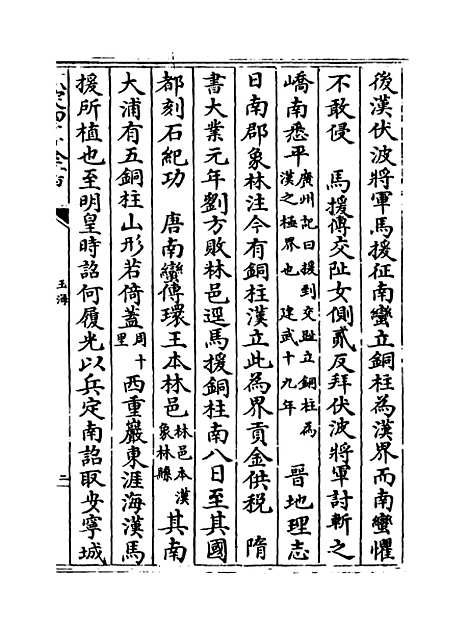 後漢伏波將軍馬援征南蠻立銅柱為漢界而南蠻懼
不敢侵　馬援傳交阯女側貳反拜伏波將軍討斬之
嶠南悉平廣州記曰援到交趾立銅柱為漢之極界也　建武十九年　晉地理志
日南郡象林注今有銅柱漢立此為界貢金供稅　隋
書大業元年劉方敗林邑逕馬援銅柱南八日至其國
都刻石紀功　唐南蠻傳環王本林邑林邑本漢象林縣其南
大浦有五銅柱山形若倚蓋周十里西重巖東涯海漢馬
援所植也至明皇時詔何履光以兵定南詔取安寧城
玉海
二